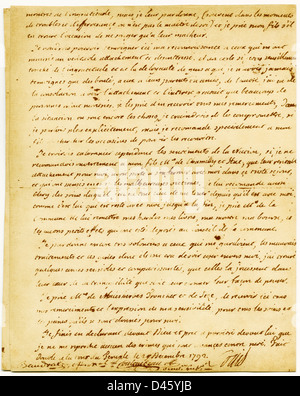 de troubles et d'effervescence on n'est pas le maitre de soi) et je prie mon fils s'il
en trouve l'occasion de ne songer qu'a leur malheur.
Je voudrois pouvoir temoigner ici ma reconnoissance a ceux qui m'ont
montré un veritable attachement et desinteressé. d'un coté si j'etois sensiblement
touché de l'ingratitude et de la deloyauté de
j'ai eu de
la consolation a voir l'attachement et l'interest gratuit que beaucoup de
personnes m'ont montrées. je les prie d'en recevoir tous mes remerciments
la situation ou sont encore les choses, je craindrois de les compromettre si
je parlois plus explicitement, mais je recommande specialement a mon
fils de chercher les occasions de pouvoir les reconnoitre.
Je croirois calomnier cependant les sentiments de la Nation, si je ne
recommandois ouvertement a mon fils Mrs de Chamilly et Hue, que leur veritable
attachement pour moi, avoit porté a s'enfermer avec moi dans ce triste sejour,
et qui ont pensé en etre les malheureuses victimes. je lui recommande aussi
Clery des soins duquel j'ai eu tout lieu de me louer depuis qu'il est avec moi
comme c'est lui qui est resté avec moi jusqu'a la fin, je prie Mrs de la
Commune de lui remettre mes hardes mes livres, ma montre ma bourse, et
les autres petits effets qui ont été deposés au Conseil de la Commune.
Je pardonne encore tres volontiers a ceux qui me gardoient, les mauvais
traitements et les gesnes dont ils ont cru devoir user envers moi. j'ai trouvé
quelques ames sensibles et compatissantes, que celles la jouissent dans
leur coeur de la tranquillité que doit leur donner leur façon de penser.
Je prie Mrs de Malesherbes Tronchet et de Seze, de recevoir ici tous
mes remerciments et l'expression de ma sensibilité, pour tous les soins et
les peines qu'ils se sont donnés pour moi.
Je finis en declarant devant Dieu et pret a paroitre devant lui que
je ne me reproche aucun des crimes qui sont avancés contre moi. Fait
double a la tour du Temple le 25 Decembre 1792.
Louis
alamy
D45YJB